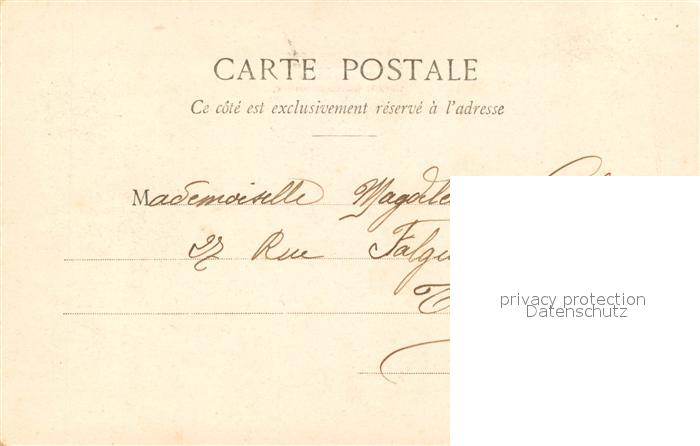 CARTE POSTALE
Ce côté est exclusivement réservé à l'adresse
Mademoiselle
27 Rue
privacy protection
Datenschutz